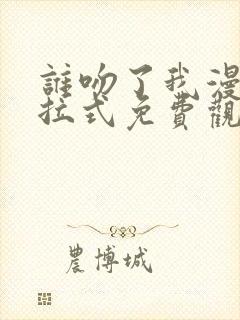 誰吻了我漫
拉式免費觀
農博城